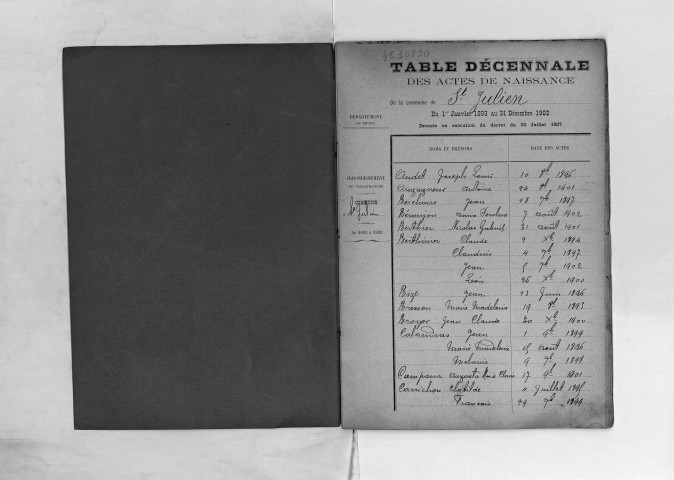 4E10890
TABLE DÉCENNALE
DES ACTES DE NAISSANCE
De la commune de St Julien
Du 1er Janvier 1893 au 31 Décembre 1902
Dressée en exécution du décret du 20 Juillet 1807
DÉPARTEMENT
DU RHONE
ARRONDISSEMENT
DE VILLEFRANCHE
COMMUNE
St Julien
De 1893 à 1902
NOMS ET PRÉNOMS DATE DES ACTES
Audet Joseph Louis 10 1896
Augagneur Antoine 1901
Berchoux Jean 1897
Anna 7 août 1902
Berthier Nicolas Gabriel 31 août 1901
Berthinier Claude 2 Xbre 1894
Claudius 4 7bre 1897
Jean 5 7bre 1902
Léon 26 Xbre 1900
Bize Jean 23 Juin 1896
Brosson Marie Madeleine 19 1893
Broyer Jean Claude 30 Xbre 1900
Calandras Jean 1 9bre 1899
Marie Madeleine août 1896
Mélanie 9 7bre 1898
Campana Augusta Marie Claire 17 9bre 1901
Carrichon Clotilde 4 Juillet 1895
François 7bre 1899